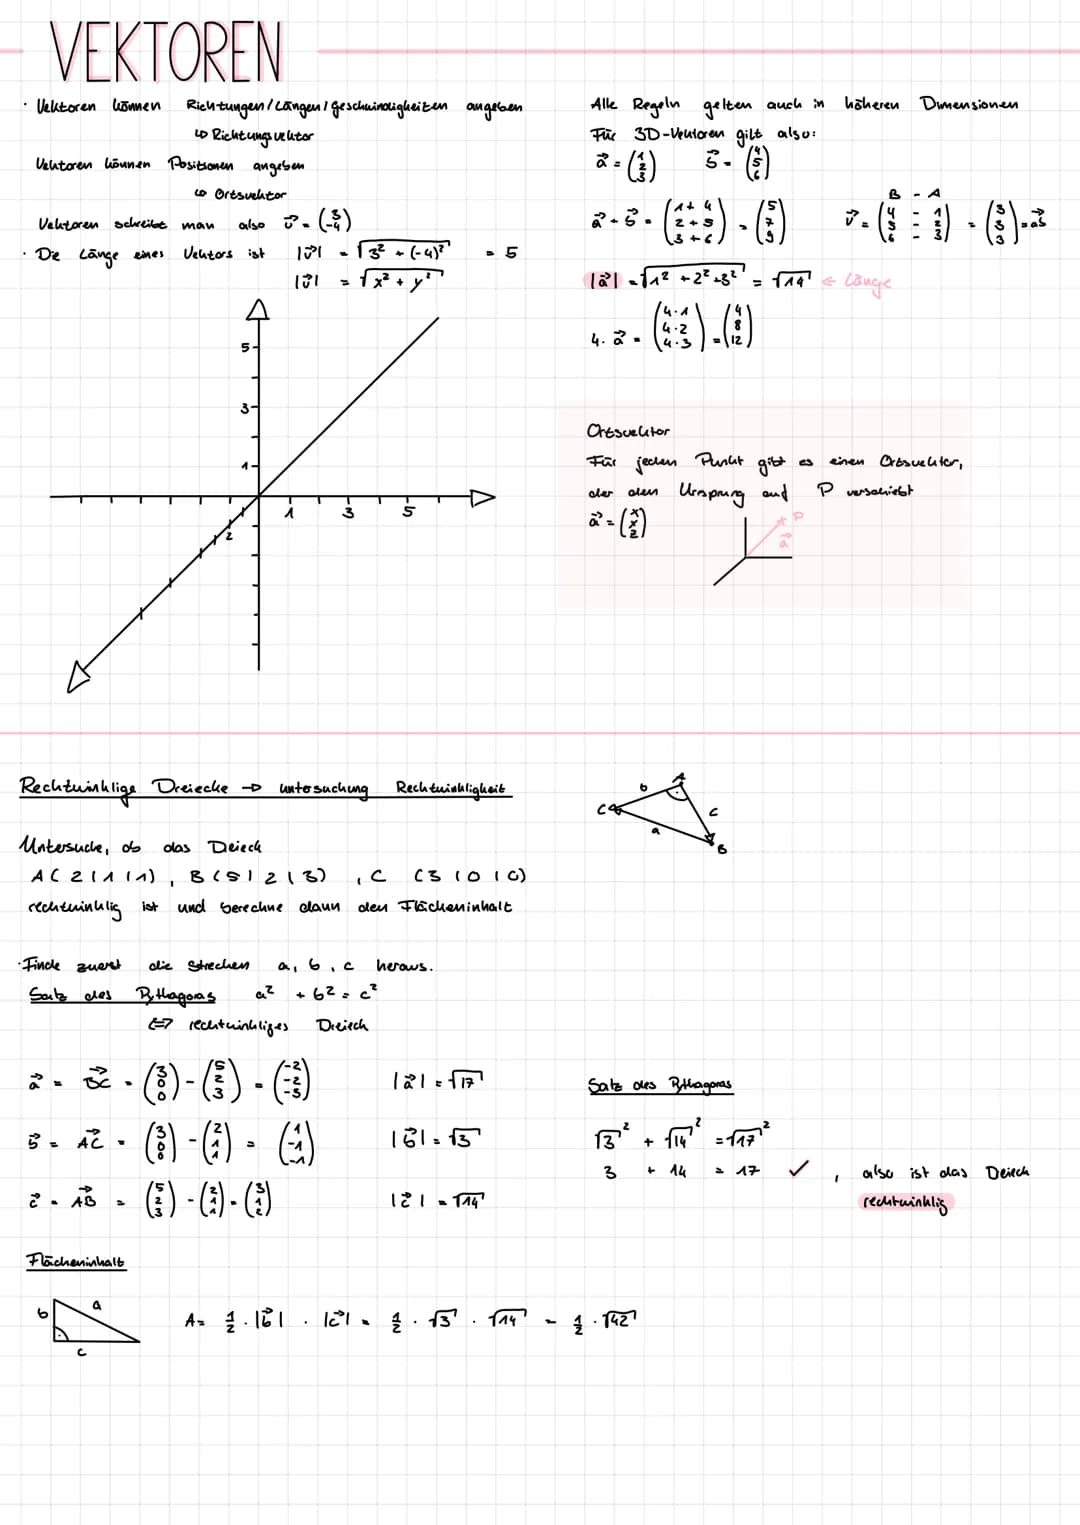 VEKTOREN
· Vektoren können Richtungen / Längen / Geschwindigkeiten angeben
↳ Richtungsvektor
Vektoren können Positionen angeben
↳ Ortsvektor
Vektoren schreibt man also v⃗ = (3 / -4)
· Die Länge eines Vektors ist |v⃗| = √(3² + (-4)²) = 5
|v⃗| = √(x² + y²)
5
3
1
1 3 5
2
Alle Regeln gelten auch in höheren Dimensionen
Für 3D-Vektoren gilt also:
a⃗ = (1 / 2 / 3) b⃗ = (4 / 5 / 6)
B - A
a⃗ + b⃗ = (1 + 4 / 2 + 5 / 3 + 6) = (5 / 7 / 9) v⃗ = (4 - 1 / 5 - 2 / 6 - 3) = (3 / 3 / 3) = ab⃗
|a⃗| = √(1² + 2² + 3²) = √14 ← Länge
4 · a⃗ = (4·1 / 4·2 / 4·3) = (4 / 8 / 12)
Ortsvektor
Für jeden Punkt gibt es einen Ortsvektor,
der den Ursprung auf P verschiebt
a⃗ = (x / x / z)
P
a⃗
Rechtwinklige Dreiecke → untersuchung Rechtwinkligkeit
A
b
C
c
a
B
Untersuche, ob das Deieck
A(2|1|1), B(5|2|3), C (3|0|0)
rechtwinklig ist und berechne dann den Flächeninhalt
· Finde zuerst die Strecken a, b, c heraus.
Satz des Pythagoras a² + b² = c²
⇔ rechtwinkliges Dreieck
a⃗ = BC⃗ = (3 / 0 / 0) - (5 / 2 / 3) = (-2 / -2 / -3) |a⃗| = √17
b⃗ = AC⃗ = (3 / 0 / 0) - (2 / 1 / 1) = (1 / -1 / -1) |b⃗| = √3
c⃗ = AB⃗ = (5 / 2 / 3) - (2 / 1 / 1) = (3 / 1 / 2) |c⃗| = √14
Satz des Pythagoras
√3² + √14² = √17²
3 + 14 = 17 ✓, also ist das Deieck
rechtwinklig
Flächeninhalt
b
a
c
A = 1/2 · |b⃗| · |c⃗| = 1/2 · √3 · √14 = 1/2 · √42